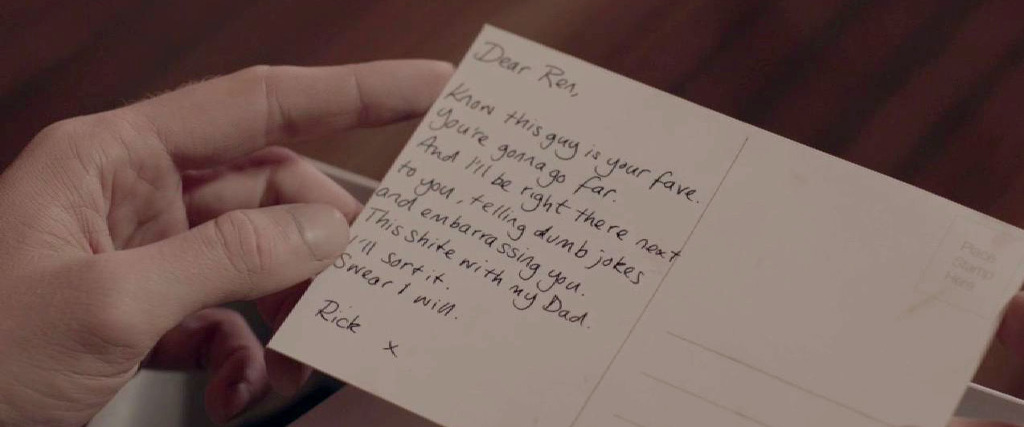 Dear Ren,
Know this guy is your fave.
You're gonna go far.
And I'll be right there next
to you, telling dumb jokes
and embarrassing you.
This shite with my Dad.
I'll sort it.
Swear I will.
Rick
x
Place
Stamp
Here